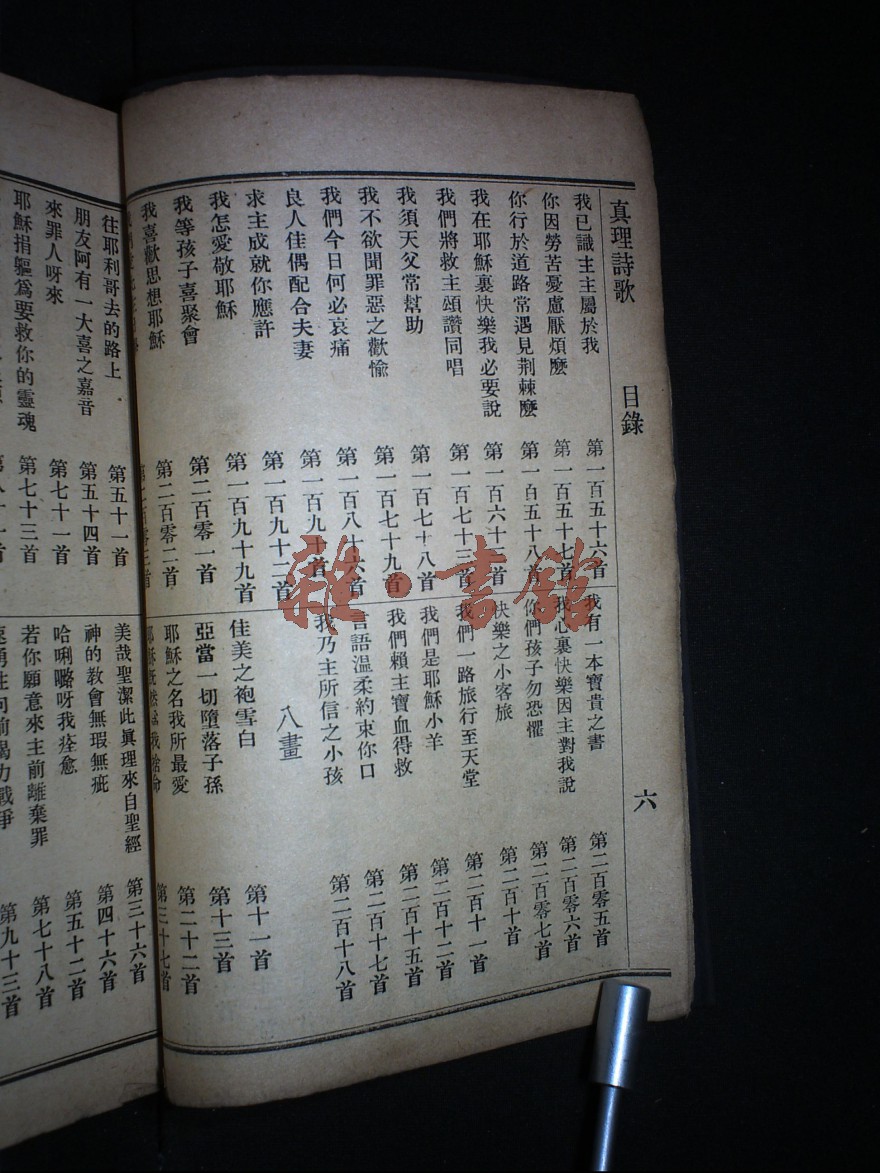 真理詩歌 目錄 六
我已識主主屬於我 第一百五十六首
你因勞苦憂慮厭煩麽 第一百五十七首
你行於道路常遇見荆棘麽 第一百五十八首
我在耶穌裏快樂我必要說 第一百六十一首
我們將救主頌讚同唱 第一百七十三首
我須天父常幫助 第一百七十八首
我不欲聞罪惡之歡愉 第一百七十九首
我們今日何必哀痛 第一百八十六首
良人佳偶配合夫妻 第一百九十首
求主成就你應許 第一百九十二首
我怎愛敬耶穌 第一百九十九首
我等孩子喜聚會 第二百零一首
我喜歡思想耶穌 第二百零二首
我有一本寶貴之書 第二百零五首
我心裏快樂因主對我說 第二百零六首
你們孩子勿恐懼 第二百零七首
快樂之小客旅 第二百十首
我們一路旅行至天堂 第二百十一首
我們是耶穌小羊 第二百十二首
我們賴主寶血得救 第二百十五首
言語溫柔約束你口 第二百十七首
我乃主所信之小孩 第二百十八首
八畫
佳美之袍雪白 第十一首
亞當一切墮落子孫 第十三首
耶穌之名我所最愛 第二十二首
耶穌既然爲我捨命 第三十七首
往耶利哥去的路上 第五十一首
朋友阿有一大喜之嘉音 第五十四首
來罪人呀來 第七十一首
耶穌捐軀爲要救你的靈魂 第七十三首
美哉聖潔此眞理來自聖經 第三十六首
神的教會無瑕無疵 第四十六首
哈唎嚕呀我痊愈 第五十二首
若你願意來主前離棄罪 第七十八首
勇往向前竭力戰爭 第九十三首
雜·書館